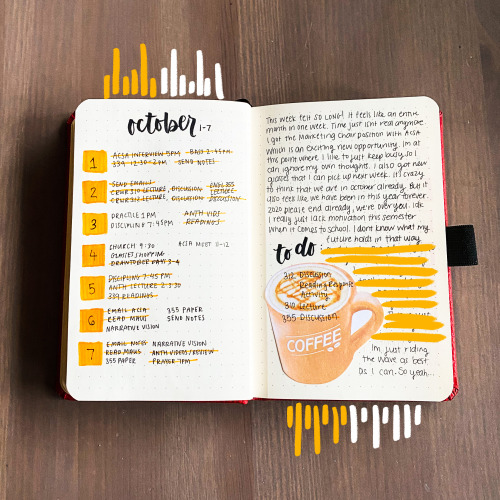 october 1-7
1
ACSA INTERVIEW 5PM BASS 2:45PM
339 12:30-2PM SEND NOTES
2
SEND EMAILS
CRWR 310 LECTURE, DISCUSSION ENGL 355
CRWR 312 LECTURE, DISCUSSION LECTURE
DISCUSSION
3
PRACTICE 1 PM ANTH VIDS
DISCIPLING 7:45PM READINGS
4
CHURCH 9:30 ACSA MEET 11-12
GLASSES SHOPPING
5
DISCIPLING 7:45 PM
ANTH LECTURE 2-3:30
339 READINGS
6
EMAIL ACSA 355 PAPER
READ MAUS SEND NOTES
NARRATIVE VISION
7
EMAIL NOTES NARRATIVE VISION
READ MAUS ANTH VIDEOS/REVIEW
355 PAPER PRAYER 7PM
This week felt SO LONG! It feels like an entire
month in one week. Time just isnt real anymore.
I got the Marketing Chair position with ACSA
which is an exciting new opportunity. Im at
this point where I like to just keep busy so I
can ignore my own thoughts. I also got new
glasses that I can pick up next week. It's crazy
to think that we are in october already. But it
also feels like we have been in this year forever.
2020 please end already, we're over you. idk
I really just lack motivation this semester
when it comes to school. I dont know what my
future holds in that way.
to do
312 Discussion
Reading Response
Activity
310 Lecture
355 Discussion
COFFEE
Im just riding
the wave as best
as I can. So yeah...